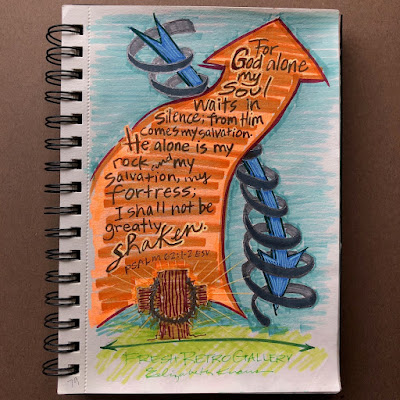 For
God alone
my
Soul
waits in
silence; from Him
comes my salvation.
He alone is my
rock and my
salvation, my
fortress;
I shall not be
greatly
shaken.
PSALM 62:1-2 ESV
FRESH RETRO GALLERY
79